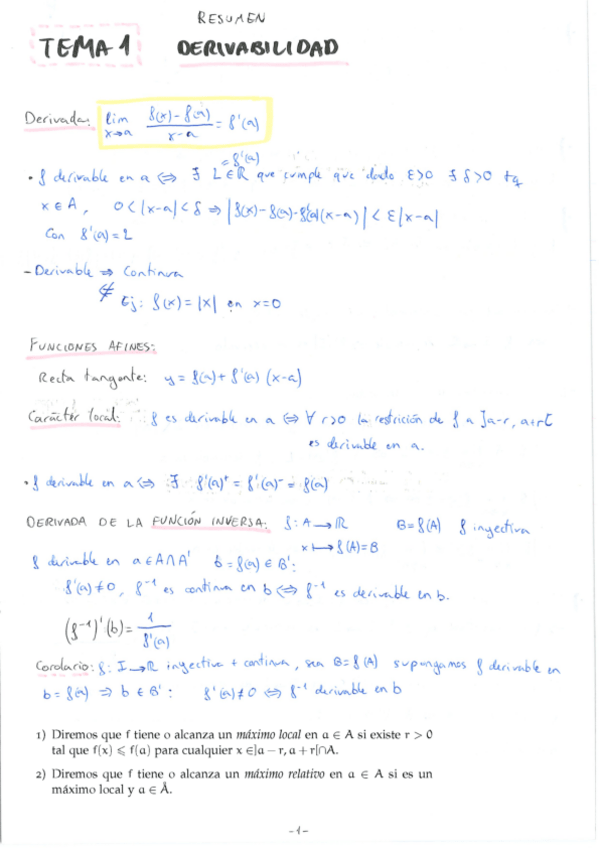 RESUMEN
TEMA 1 DERIVABILIDAD
Derivada: lim x→a (f(x)-f(a))/(x-a) = f'(a)
= f'(a)
• f derivable en a ⇔ ∃ L∈ℝ que cumple que dado ε>0 ∃ δ>0 tq
x∈A, 0<|x-a|<δ ⇒ |f(x)-f(a)-f'(a)(x-a)| < ε|x-a|
Con f'(a)=L
- Derivable ⇒ Continua
⇍ Ej: f(x)=|x| en x=0
FUNCIONES AFINES:
Recta tangente: y = f(a)+f'(a)(x-a)
Carácter local: f es derivable en a ⇔ ∀ r>0 la restricción de f a ]a-r, a+r[
es derivable en a.
• f derivable en a ⇔ ∃ f'(a)⁺ = f'(a)⁻ = f(a)
DERIVADA DE LA FUNCIÓN INVERSA: f: A→ℝ B=f(A) f inyectiva
x ↦ f(A)=B
f derivable en a∈A∩A' b=f(a)∈B':
f'(a)≠0, f⁻¹ es continua en b ⇔ f⁻¹ es derivable en b.
(f⁻¹)'(b) = 1/f'(a)
Corolario: f: I→ℝ inyectiva + continua, sea B=f(A) supongamos f derivable en
b=f(a) ⇒ b∈B': f'(a)≠0 ⇔ f⁻¹ derivable en b
1) Diremos que f tiene o alcanza un máximo local en a ∈ A si existe r > 0
tal que f(x) ⩽ f(a) para cualquier x ∈]a − r, a + r[∩A.
2) Diremos que f tiene o alcanza un máximo relativo en a ∈ A si es un
máximo local y a ∈ Å.
-1-